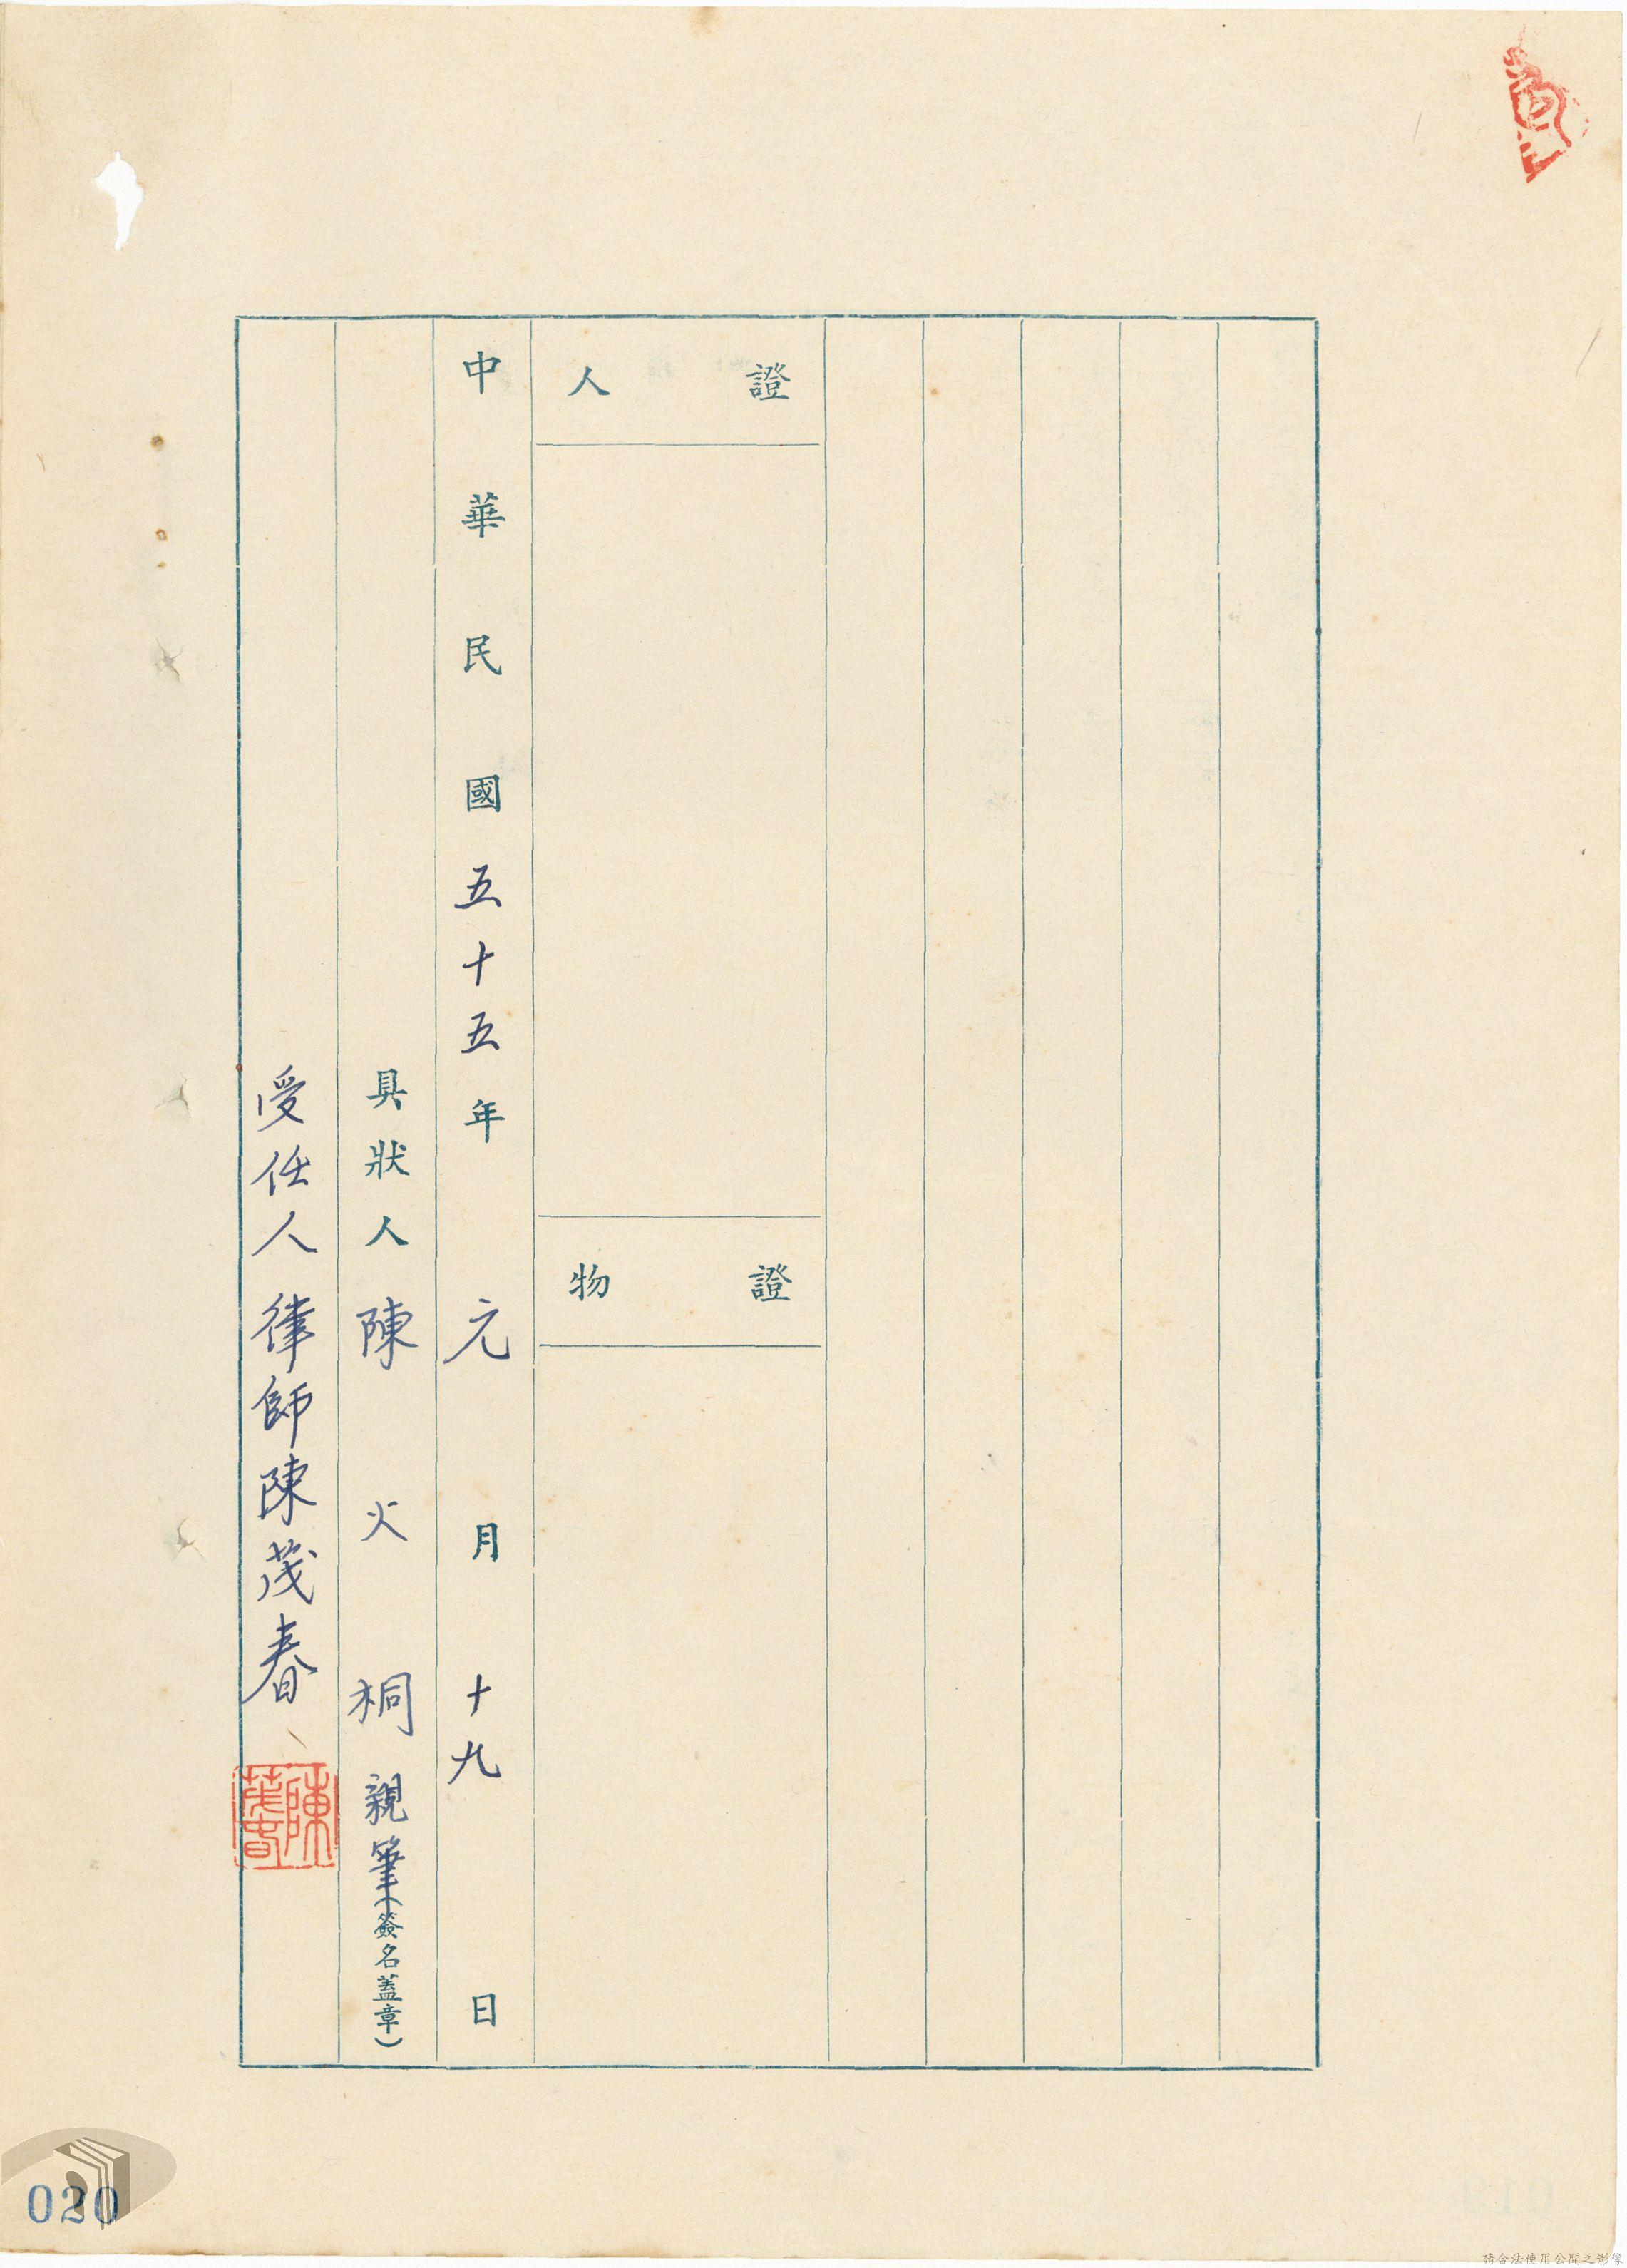 證人
證物
中華民國五十五年元月十九日
具狀人陳火桐親筆(簽名蓋章)
受任人律師陳茂春
陳茂春
020
請合法使用公開之影像